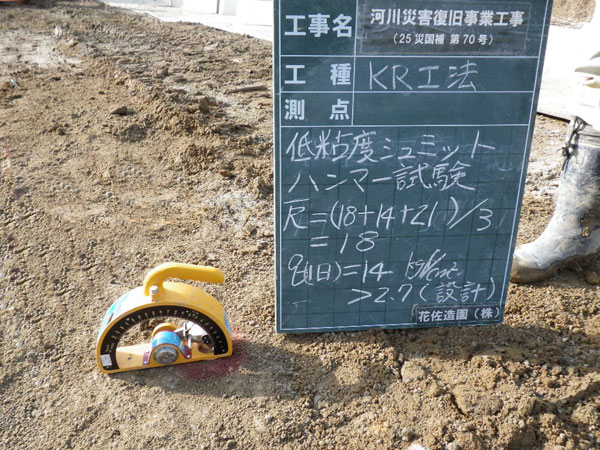 工事名 河川災害復旧事業工事
(25災国補 第70号)
工種 KR工法
測点
低粘度シュミット
ハンマー試験
R̅=(18+14+21)/3
=18
q(1日)=14
>2.7(設計)
花佐造園(株)